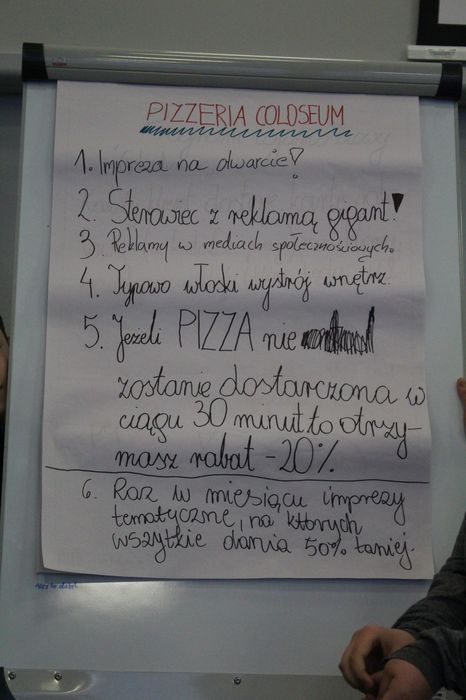 PIZZERIA COLOSEUM
1. Impreza na otwarcie!
2. Sterowiec z reklamą gigant!
3. Reklamy w mediach społecznościowych.
4. Typowo włoski wystrój wnętrz.
5. Jeżeli PIZZA nie
zostanie dostarczona w
ciągu 30 minut to otrzy-
masz rabat -20%
6. Raz w miesiącu imprezy
tematyczne, na których
wszytkie dania 50% taniej.